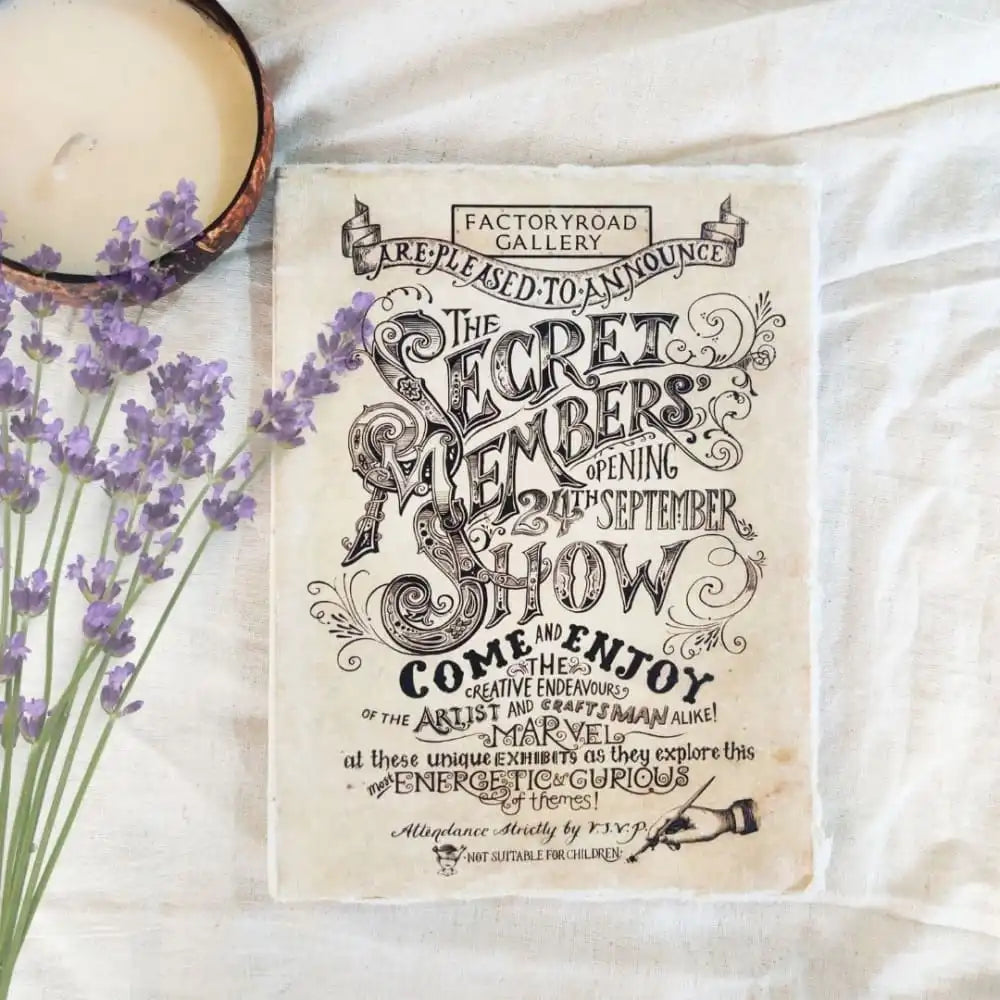 FACTORYROAD
GALLERY
ARE·PLEASED·TO·ANNOUNCE
THE
SECRET
MEMBERS'
OPENING
24TH SEPTEMBER
SHOW
COME AND ENJOY
THE
CREATIVE ENDEAVOURS
OF THE ARTIST AND CRAFTSMAN ALIKE!
MARVEL
at these unique EXHIBITS as they explore this
most ENERGETIC & CURIOUS
of themes!
Attendance Strictly by r.s.v.p.
·NOT SUITABLE FOR CHILDREN·